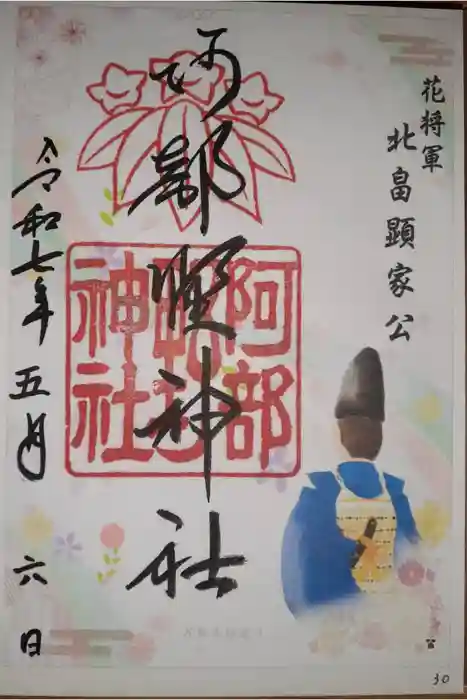 花将軍
北畠顕家公
阿部野神社
阿部野神社
令和七年五月六日
30